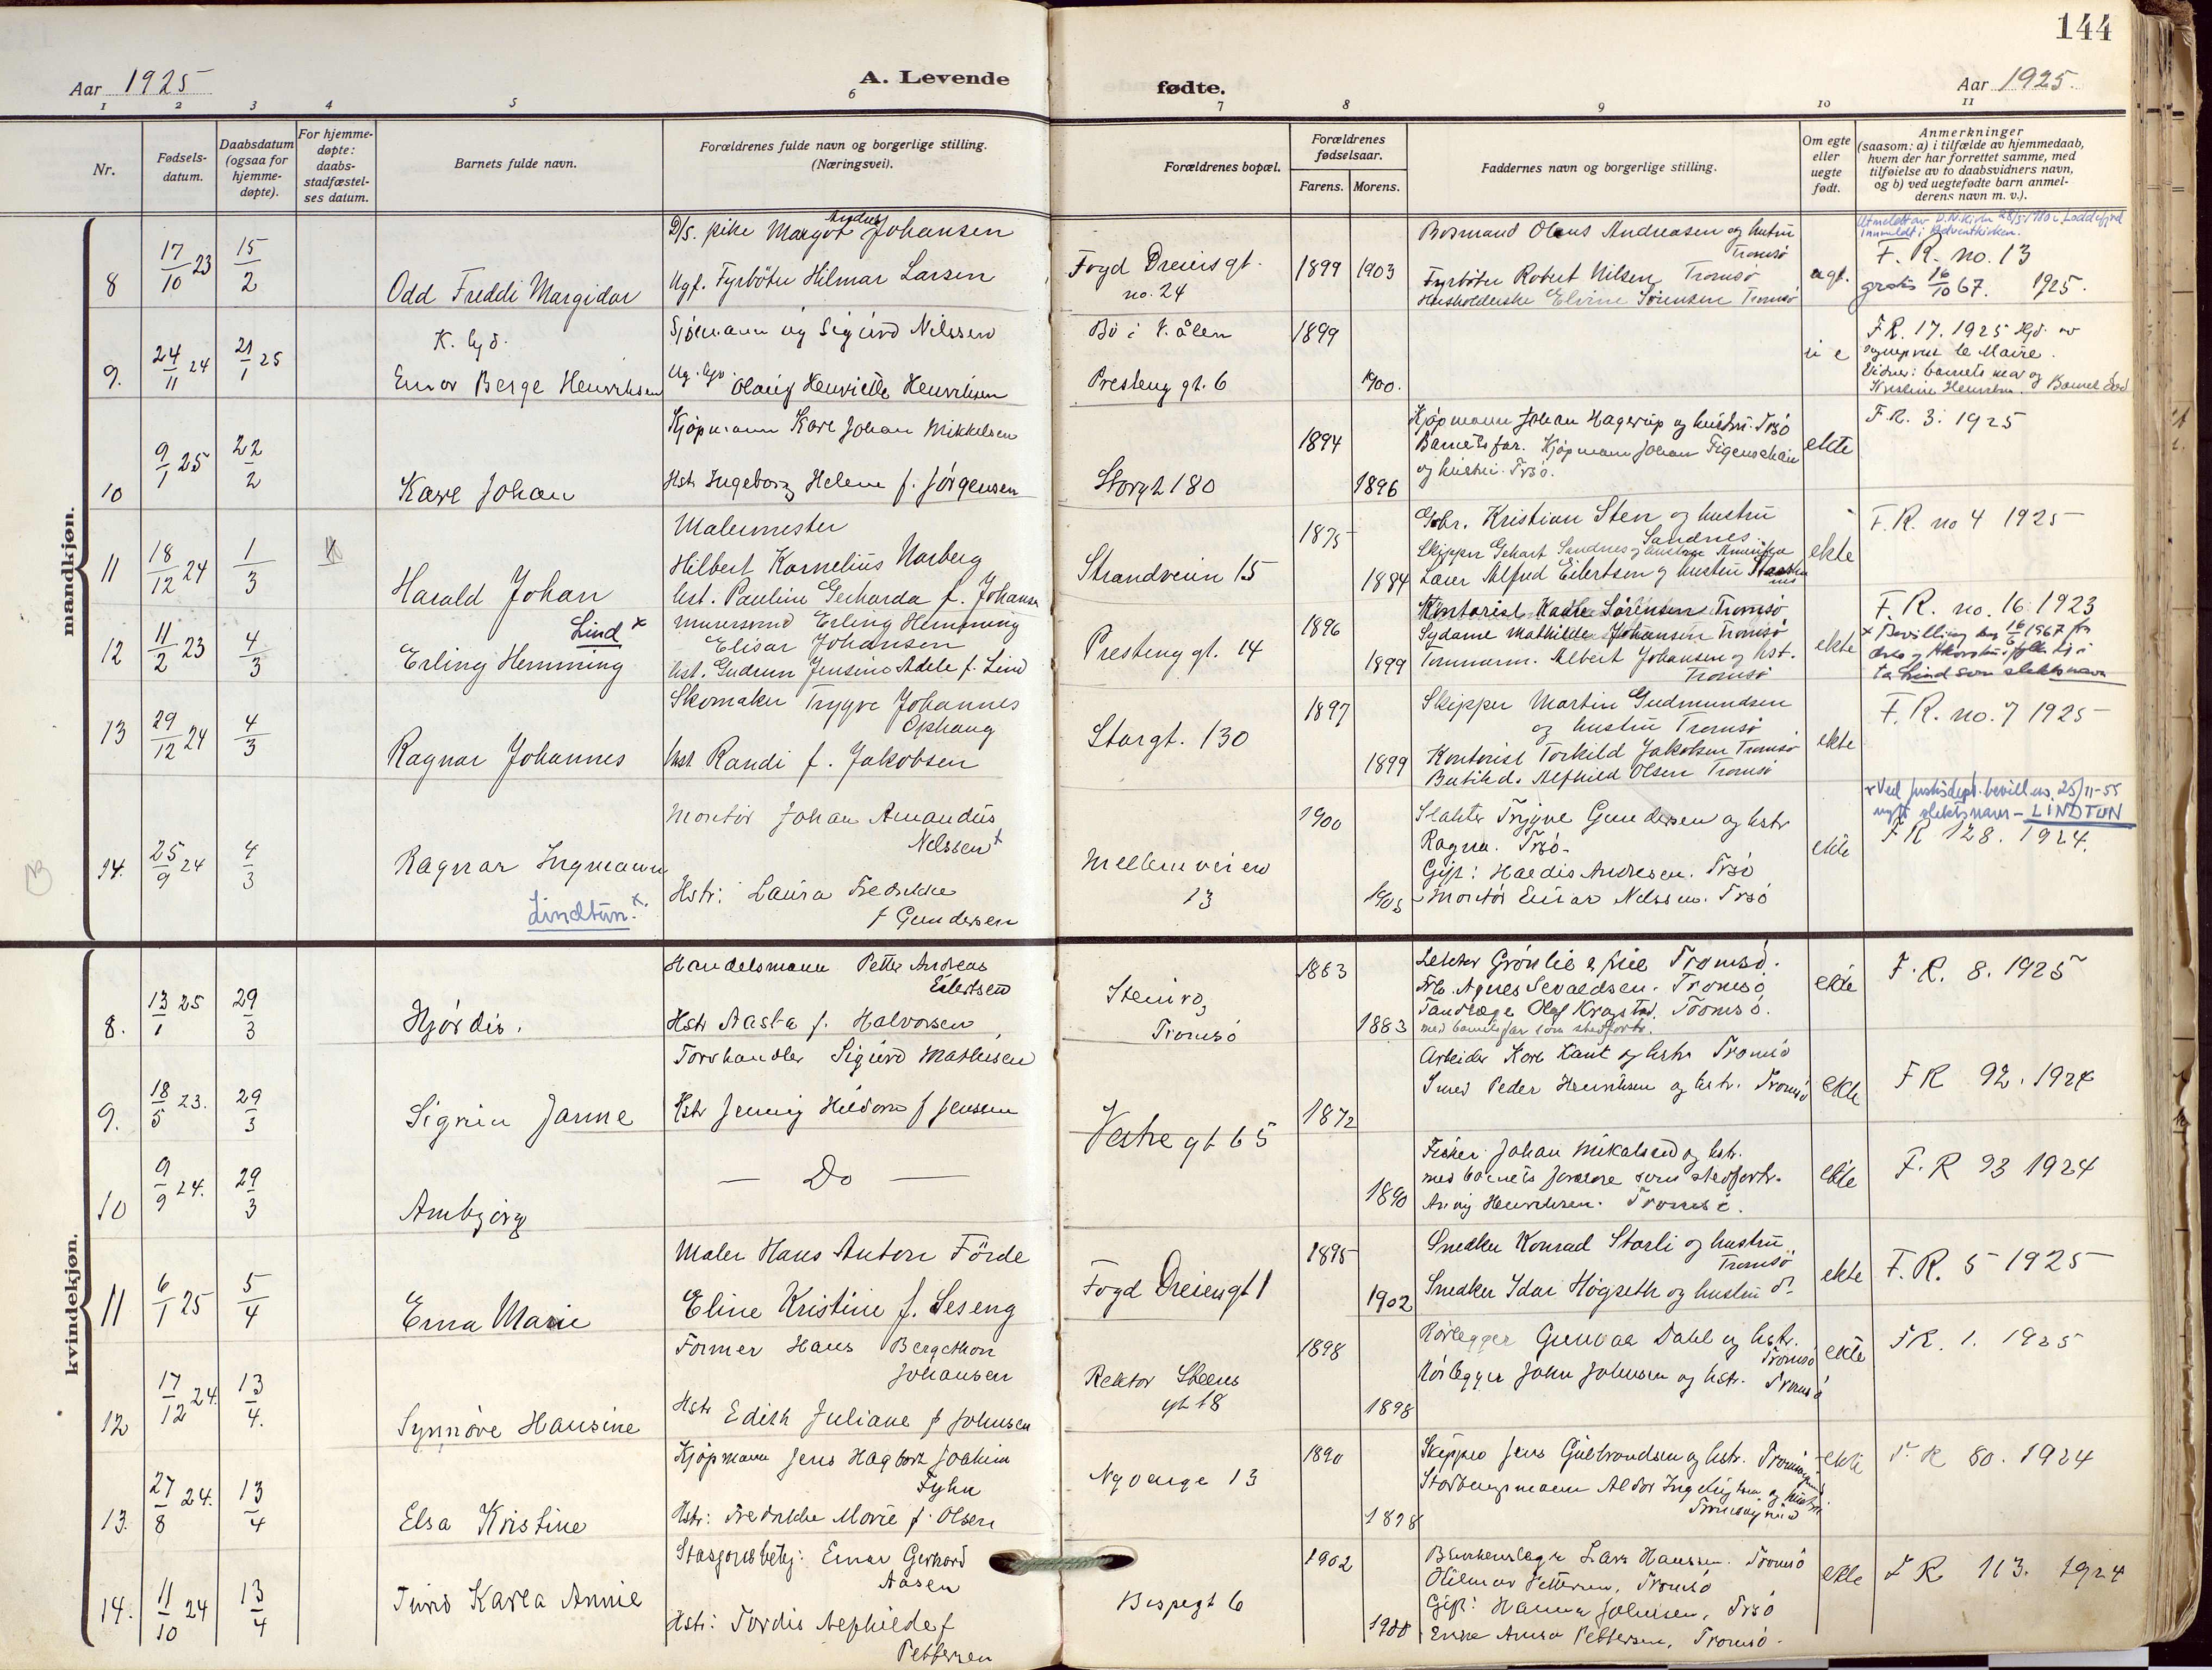 144
Aar 1925
A. Levende
fødte.
Aar 1925.
1 2 3 4 5 6 7 8 9 10 11
Nr.
Fødsels-
datum.
Daabsdatum
(ogsaa for
hjemme-
døpte).
For hjemme-
døpte:
daabs-
stadfæstel-
ses datum.
Barnets fulde navn.
Forældrenes fulde navn og borgerlige stilling.
(Næringsvei).
Forældrenes bopæl.
Forældrenes
fødselsaar.
Farens. Morens.
Faddernes navn og borgerlige stilling.
Om egte
eller
uegte
født.
Anmerkninger
(saasom: a) i tilfælde av hjemmedaab,
hvem der har forrettet samme, med
tilføielse av to daabsvidners navn,
og b) ved uegtefødte barn anmel-
derens navn m. v.).
mandkjøn.
8
17/10 23
15/2
Odd Freddi Margidar
pike Margot Johansen
Ugf. Fyrbøter Hilmar Larsen
Fogd Dreiersgt.
no. 24
1899 1903
Olaus Andreasen og hustru
Tromsø
Fyrbøter Robert Nilsen Tromsø
Husholderske Elvine Sørensen Tromsø
ugf.
F. R. no. 13
gratis 16/10 67. 1925.
9.
24/11 24
21/1 25
Einar Berge Henriksen
Sjømann ug Sigurd Nilssen
Olaug Henriette Henriksen
Bø i V.ålen
Presteng gt. 6
1899
1900.
u e
F.R. 17. 1925
le Maire.
10
9/1 25
22/2
Kåre Johan
Kjøpmann Kåre Johan Mikkelsen
Hstr Ingeborg Helene f. Jørgensen
Storgt 180
1894
1896
Kjøpmann Johan Hagerup og hustru. Trsø
Barnets far. Kjøpmann Johan Figenschau
og hustru. Trsø.
ekte
F.R. 3. 1925
11
18/12 24
1/3
Harald Johan
Malermester
Hilbert Kornelius Norberg
hst. Pauline Gerharda f. Johansen
Strandveien 15
1875
1884
Kristian Sten og hustru
Sandnes
Skipper Gehart Sandnes
Lærer Alfred Eilertsen og hustru
ekte
F.R. no 4 1925
12
11/2 23
4/3
Lind x
Erling Hemming
Murersvend Erling Hemming
Elisar Johansen
hst. Gudrun Jensine Adele f. Lind
Presteng gt. 14
1896
1899
Kontorist Kaare Sørensen Tromsø
Sydame Mathilde Johansen Tromsø
Tømmerm. Albert Johansen og hst.
Tromsø
ekte
F. R. no. 16. 1923
x Bevilling 16/6 1967
ta Lind som slektsnavn
13
29/12 24
4/3
Ragnar Johannes
Skomaker Trygve Johannes
Ophaug
hst Randi f. Jakobsen
Storgt. 130
1897
1899
Skipper Martin Gudmundsen
og hustru Tromsø
Kontorist Torkild Jakobsen Tromsø
Butikd. Alfhild Olsen Tromsø
ekte
F. R. no. 7 1925
14.
25/9 24
4/3
Ragnar Ingmann
Lindtun. x.
Montør Johan Amandus
Nilssen x
Hstr: Laura Fredrikke
f Gundersen
Mellemveien
13
1900
1905
Slakter Trygve Gundersen og hstr
Ragna. Trsø.
Gift: Haldis Andresen. Trsø
Montør Einar Nilssen. Trsø
ekte
x Ved Justisdept. bevill. av 25/11-55
nytt slektsnavn - LINDTUN
FR 128. 1924.
kvindekjøn.
8.
13/1 25
29/3
Hjørdis.
Handelsmann Petter Andreas
Eilertsen
Hstr Aasta f. Halvorsen
Tromsø
1863
1883
Lektor Grønlie & frue Tromsø.
Frk. Agnes Sevaldsen. Tromsø
Tandlæge Olaf Kragstad. Tromsø.
med barnets far som stedfortr.
ekte
F. R. 8. 1925
9.
18/5 23.
29/3
Janne
Torvhandler Sigurd Mathisen
Hstr Jenny f Jensen
Vestre gt 65
1872
1890
Arbeider Kåre og hstr Tromsø
Smed Peder Henriksen og hstr. Tromsø
ekte
F R 92. 1924
10
9/9 24.
29/3
Arnbjørg
— Do —
Fisker Johan Mikalsen og hstr.
med barnets foreldre som stedfortr.
Henriksen. Tromsø.
ekte
F. R 93 1924
11
6/1 25
5/4
Erna Marie
Maler Hans Anton Förde
Eline Kristine f. Leseng
Fogd Dreiengt 1
1895
1902
Snedker Konrad Storli og hustru
Tromsø
Snedker Idar Høgseth og hustru do
ekte
F. R. 5 1925
12
17/12 24.
13/4.
Synnøve Hansine
Former Hans Bergethon
Johansen
Hstr Edith Juliane f Johnsen
Rektor Steens
gt 18
1898
1898
Rørlegger Dahl og hstr.
Tromsø
Rørlegger John Johnsen og hstr. Tromsø
ekte
FR. 1. 1925
13.
27/8 24.
13/4
Elsa Kristine
Kjøpmann Jens Hagbart Joakim
Fyhn
Hstr: Fredrikke Marie f. Olsen
Nyvange 13
1890
1898
Skipper Jens Gulbrandsen og hstr.
ekte
F. R 80. 1924
14.
11/10 24
13/4
Turid Karla Annie
Stasjonsbetj: Einar Gerhard
Aasen
Hstr: Tordis Alfhilde f
Pettersen
Bispegt 6
1902
1900
Lars Hanssen. Tromsø
Hilmar Pettersen, Tromsø
Gift: Hanna Johnsen, Trsø
Enke Anna Pettersen, Tromsø.
ekte
F R 113. 1924